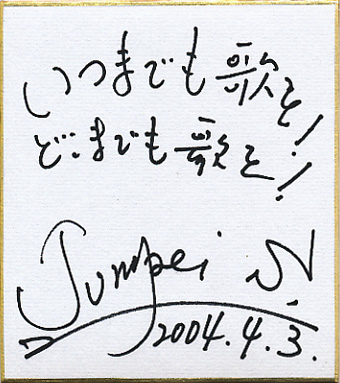 いつまでも歌を!
どこまでも歌を!
Jumpei N.
2004.4.3.